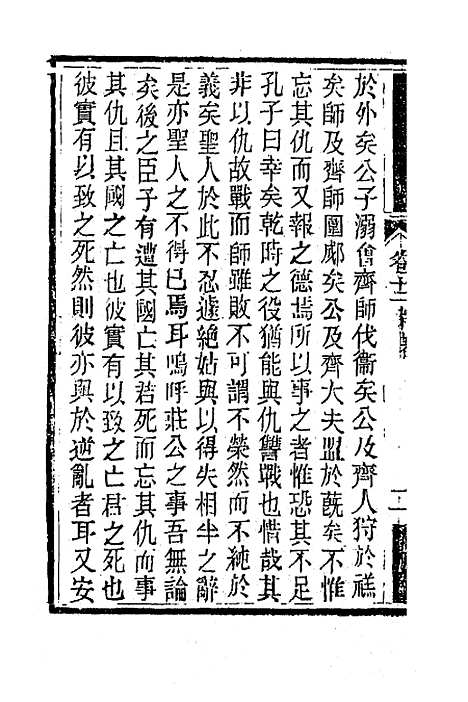 於外矣公子溺會齊師伐衞矣公及齊人狩於禚
矣師及齊師圍郕矣公及齊大夫盟於蔇矣不惟
忘其仇而又報之德焉所以事之者惟恐其不足
孔子曰幸矣乾時之役猶能與仇讐戰也惜哉其
非以仇故戰而師雖敗不可謂不榮然而不純於
義矣聖人於此不忍遽絶姑與以得失相半之辭
是亦聖人之不得已焉耳嗚呼莊公之事吾無論
矣後之臣子有遭其國亡其君死而忘其仇而事
其仇且其國之亡也彼實有以致之亡君之死也
彼實有以致之死然則彼亦與於逆亂者耳又安
卷十二